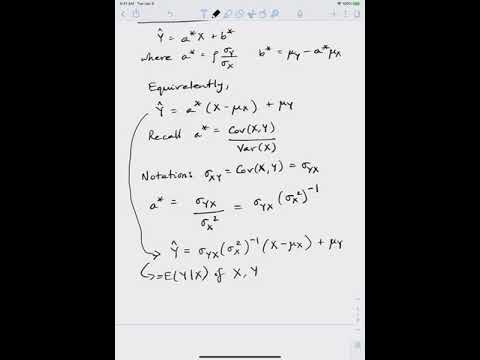 Ŷ = a*X + b*
where a* = ρ σ_Y/σ_X b* = μ_Y − a*μ_X
Equivalently,
Ŷ = a* (X − μ_X) + μ_Y
Recall a* = Cov(X,Y)/Var(X)
Notation: σ_XY = Cov(X,Y) = σ_YX
a* = σ_YX/σ_X² = σ_YX (σ_X²)⁻¹
Ŷ = σ_YX (σ_X²)⁻¹ (X − μ_X) + μ_Y
= E(Y|X) of X, Y